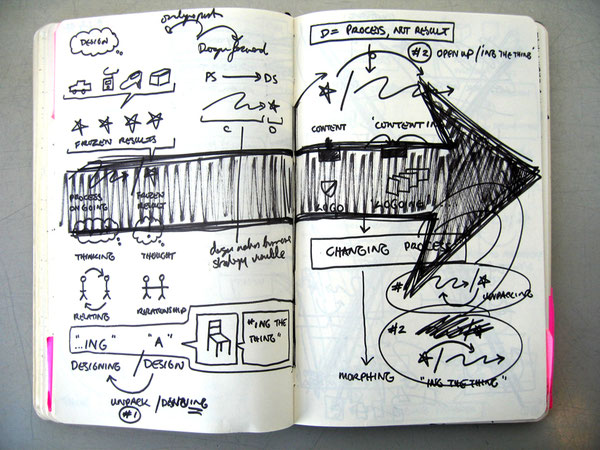 DESIGN
PS → DS
FROZEN RESULTS
C
PROCESS
ON GOING
FROZEN
RESULT
THINKING
THOUGHT
RELATING
RELATIONSHIP
"...ING"
"A"
DESIGNING / DESIGN
"ING THE
THING"
UNPACK /
#1
D = PROCESS, NOT RESULT
#2 OPEN UP / "ING THE THING"
CONTENT
LOGO
LOGOING
CHANGING PROCESS
#1
UNPACKING
#2
"ING THE THING"
MORPHING